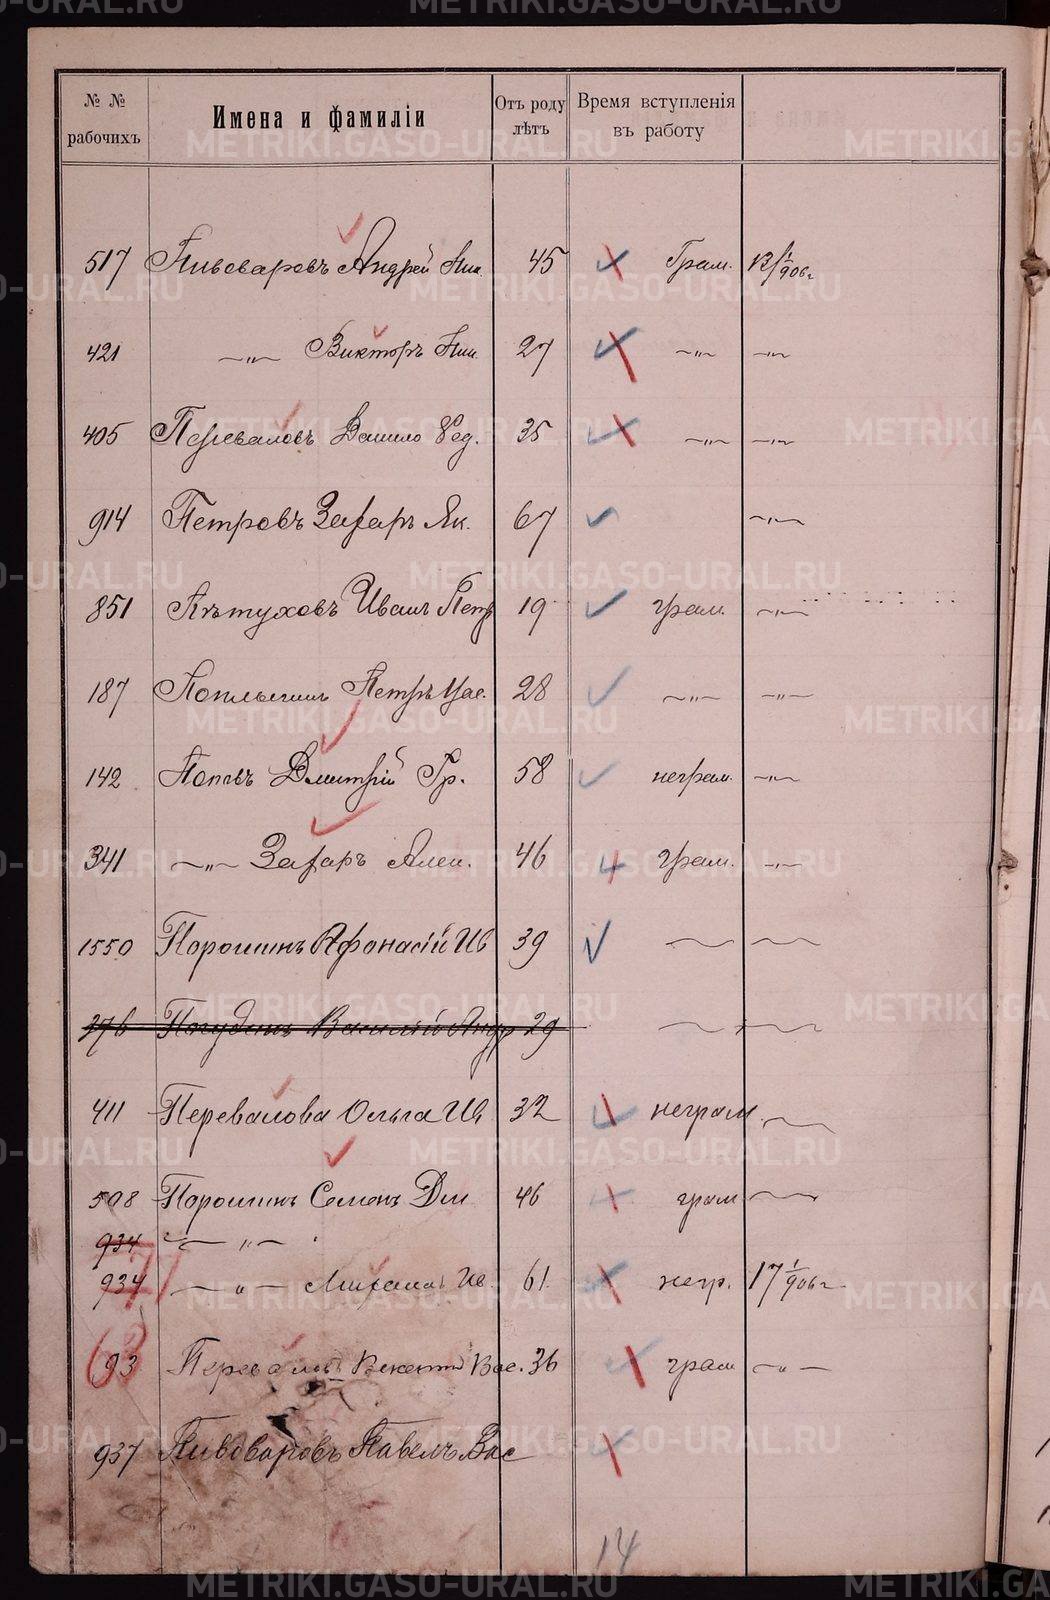 № № рабочихъ Имена и фамиліи Отъ роду лѣтъ Время вступленія въ работу
517 Пивоваровъ Андрей Ник. 45 Грам. 13/1 906 г
421 —„— Викторъ Ник. 27 —„— —„—
405 Переваловъ Васило Фед. 35 —„— —„—
914 Петровъ Захаръ Як. 67 —„—
851 Пѣтуховъ Иванъ Петр 19 грам. —„—
187 Петръ 28 —„— —„—
142 Поповъ Дмитрій Гр. 58 неграм. —„—
341 —„— Захаръ Алек. 46 грам. —„—
1550 Порошинъ Афонасій Ив 39
276 Погудинъ Василій Андр 29
411 Перевалова Ольга Ив 32 неграм
508 Порошинъ Семенъ Дм 46 грам
934 —„—
934 —„— Ив. 61. негр. 17 1/906 г.
71
63
93 Вас. 36 грам —„—
937 Пивоваровъ Павелъ Вас
14
METRIKI.GASO-URAL.RU